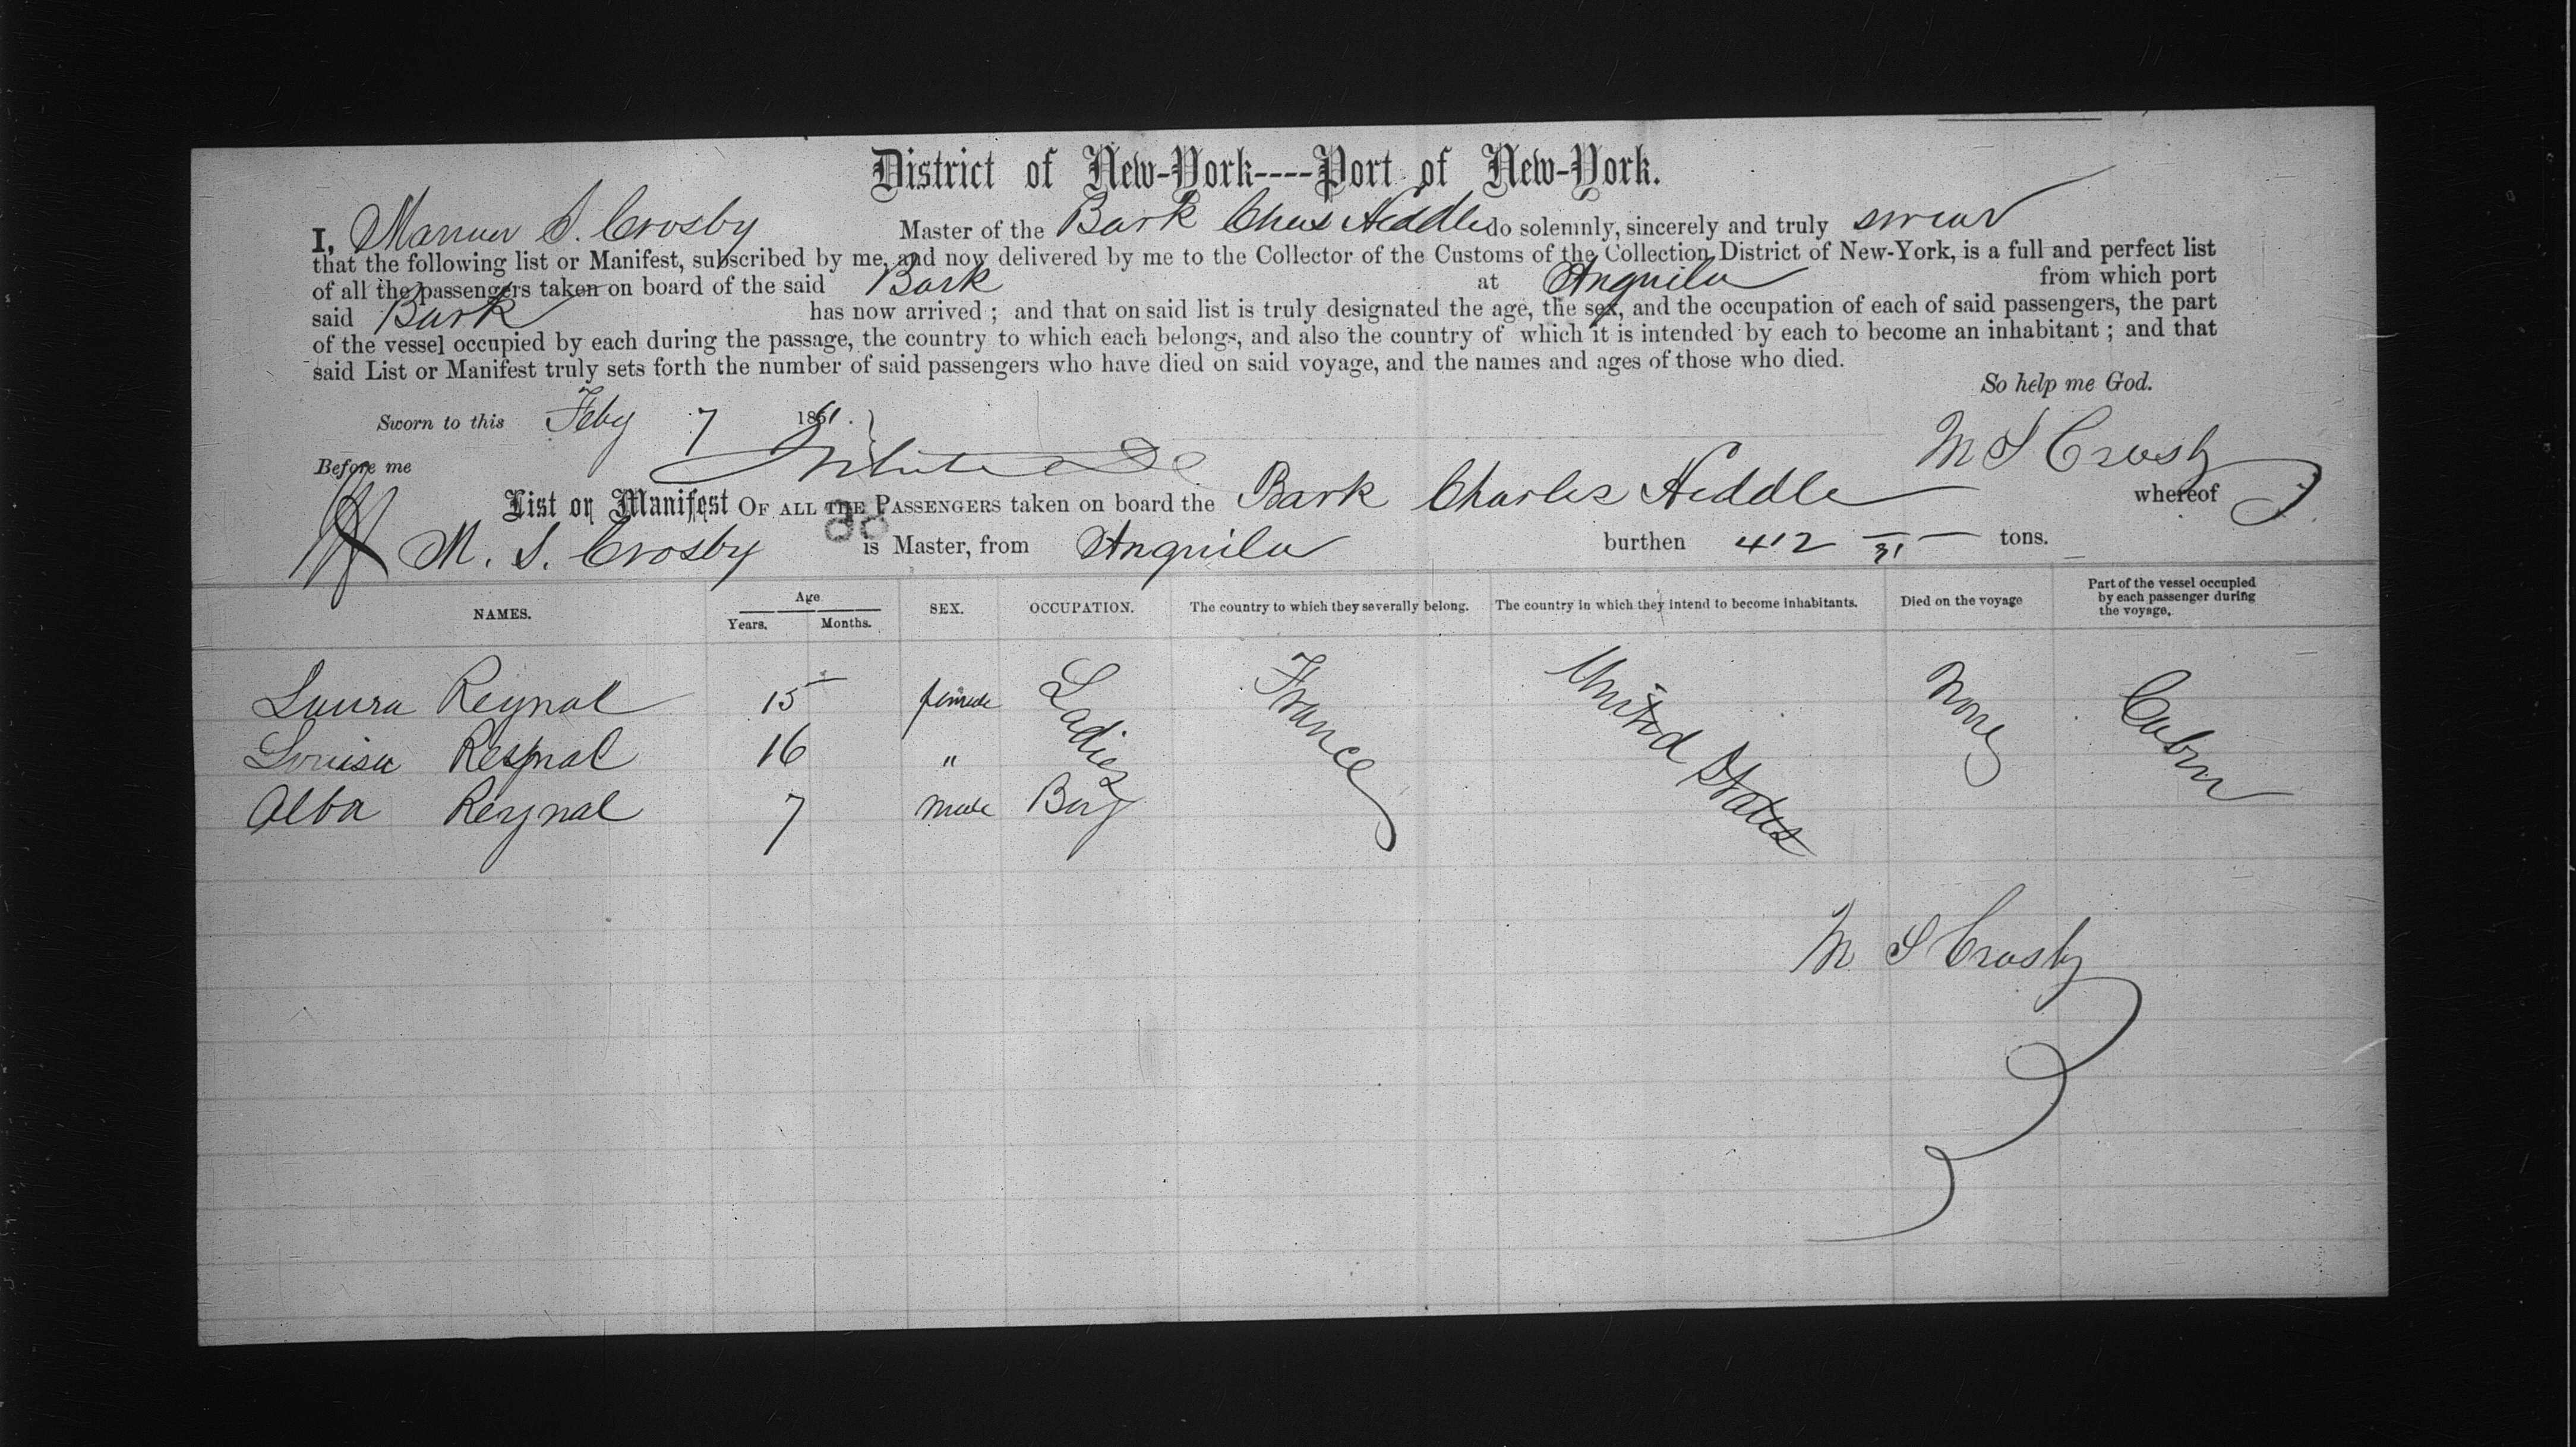 District of New-York----Port of New-York.
I, Manuer S. Crosby Master of the Bark Chas Heddle do solemnly, sincerely and truly swear
that the following list or Manifest, subscribed by me, and now delivered by me to the Collector of the Customs of the Collection District of New-York, is a full and perfect list
of all the passengers taken on board of the said Bark at Anguila from which port
said Bark has now arrived ; and that on said list is truly designated the age, the sex, and the occupation of each of said passengers, the part
of the vessel occupied by each during the passage, the country to which each belongs, and also the country of which it is intended by each to become an inhabitant ; and that
said List or Manifest truly sets forth the number of said passengers who have died on said voyage, and the names and ages of those who died.
So help me God.
Sworn to this Feby 7 1861.
M S Crosby
Before me
List or Manifest OF ALL THE PASSENGERS taken on board the Bark Charles Heddle whereof
M. S. Crosby is Master, from Anguila burthen 412 31 tons.
NAMES. Age Years. Months. SEX. OCCUPATION. The country to which they severally belong. The country in which they intend to become inhabitants. Died on the voyage Part of the vessel occupied by each passenger during the voyage.
Laura Reynal 15 female Ladies France United States None Cabin
Louisa Reynal 16 "
Alba Reynal 7 Male Boy
M S Crosby